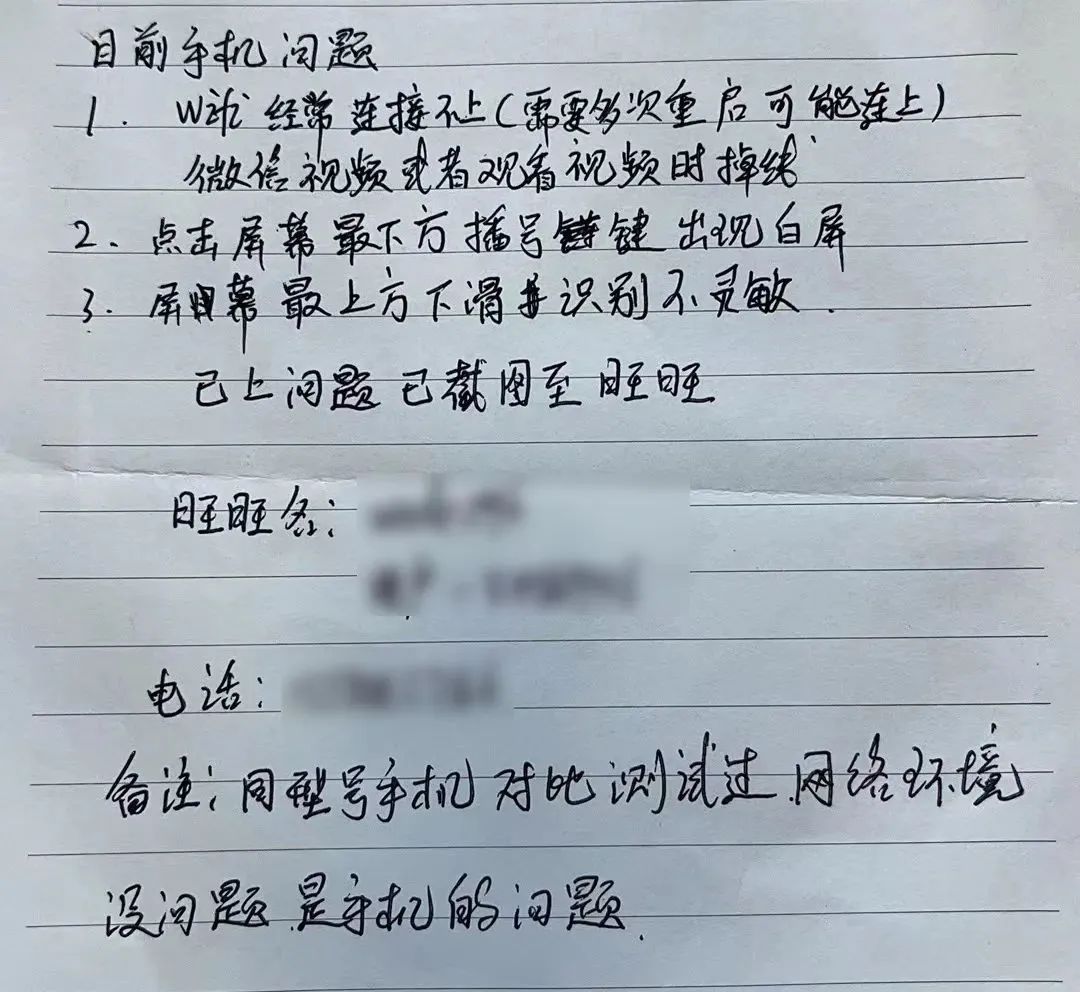 目前手机问题
1. Wifi 经常连接不上(需要多次重启可能连上)
微信视频或者观看视频时掉线
2、点击屏幕最下方播号键 出现白屏
3. 屏幕最上方下滑识别不灵敏.
已上问题已截图至旺旺
旺旺名:
电话:
备注:同型号手机对比测试过.网络环境
没问题.是手机的问题.